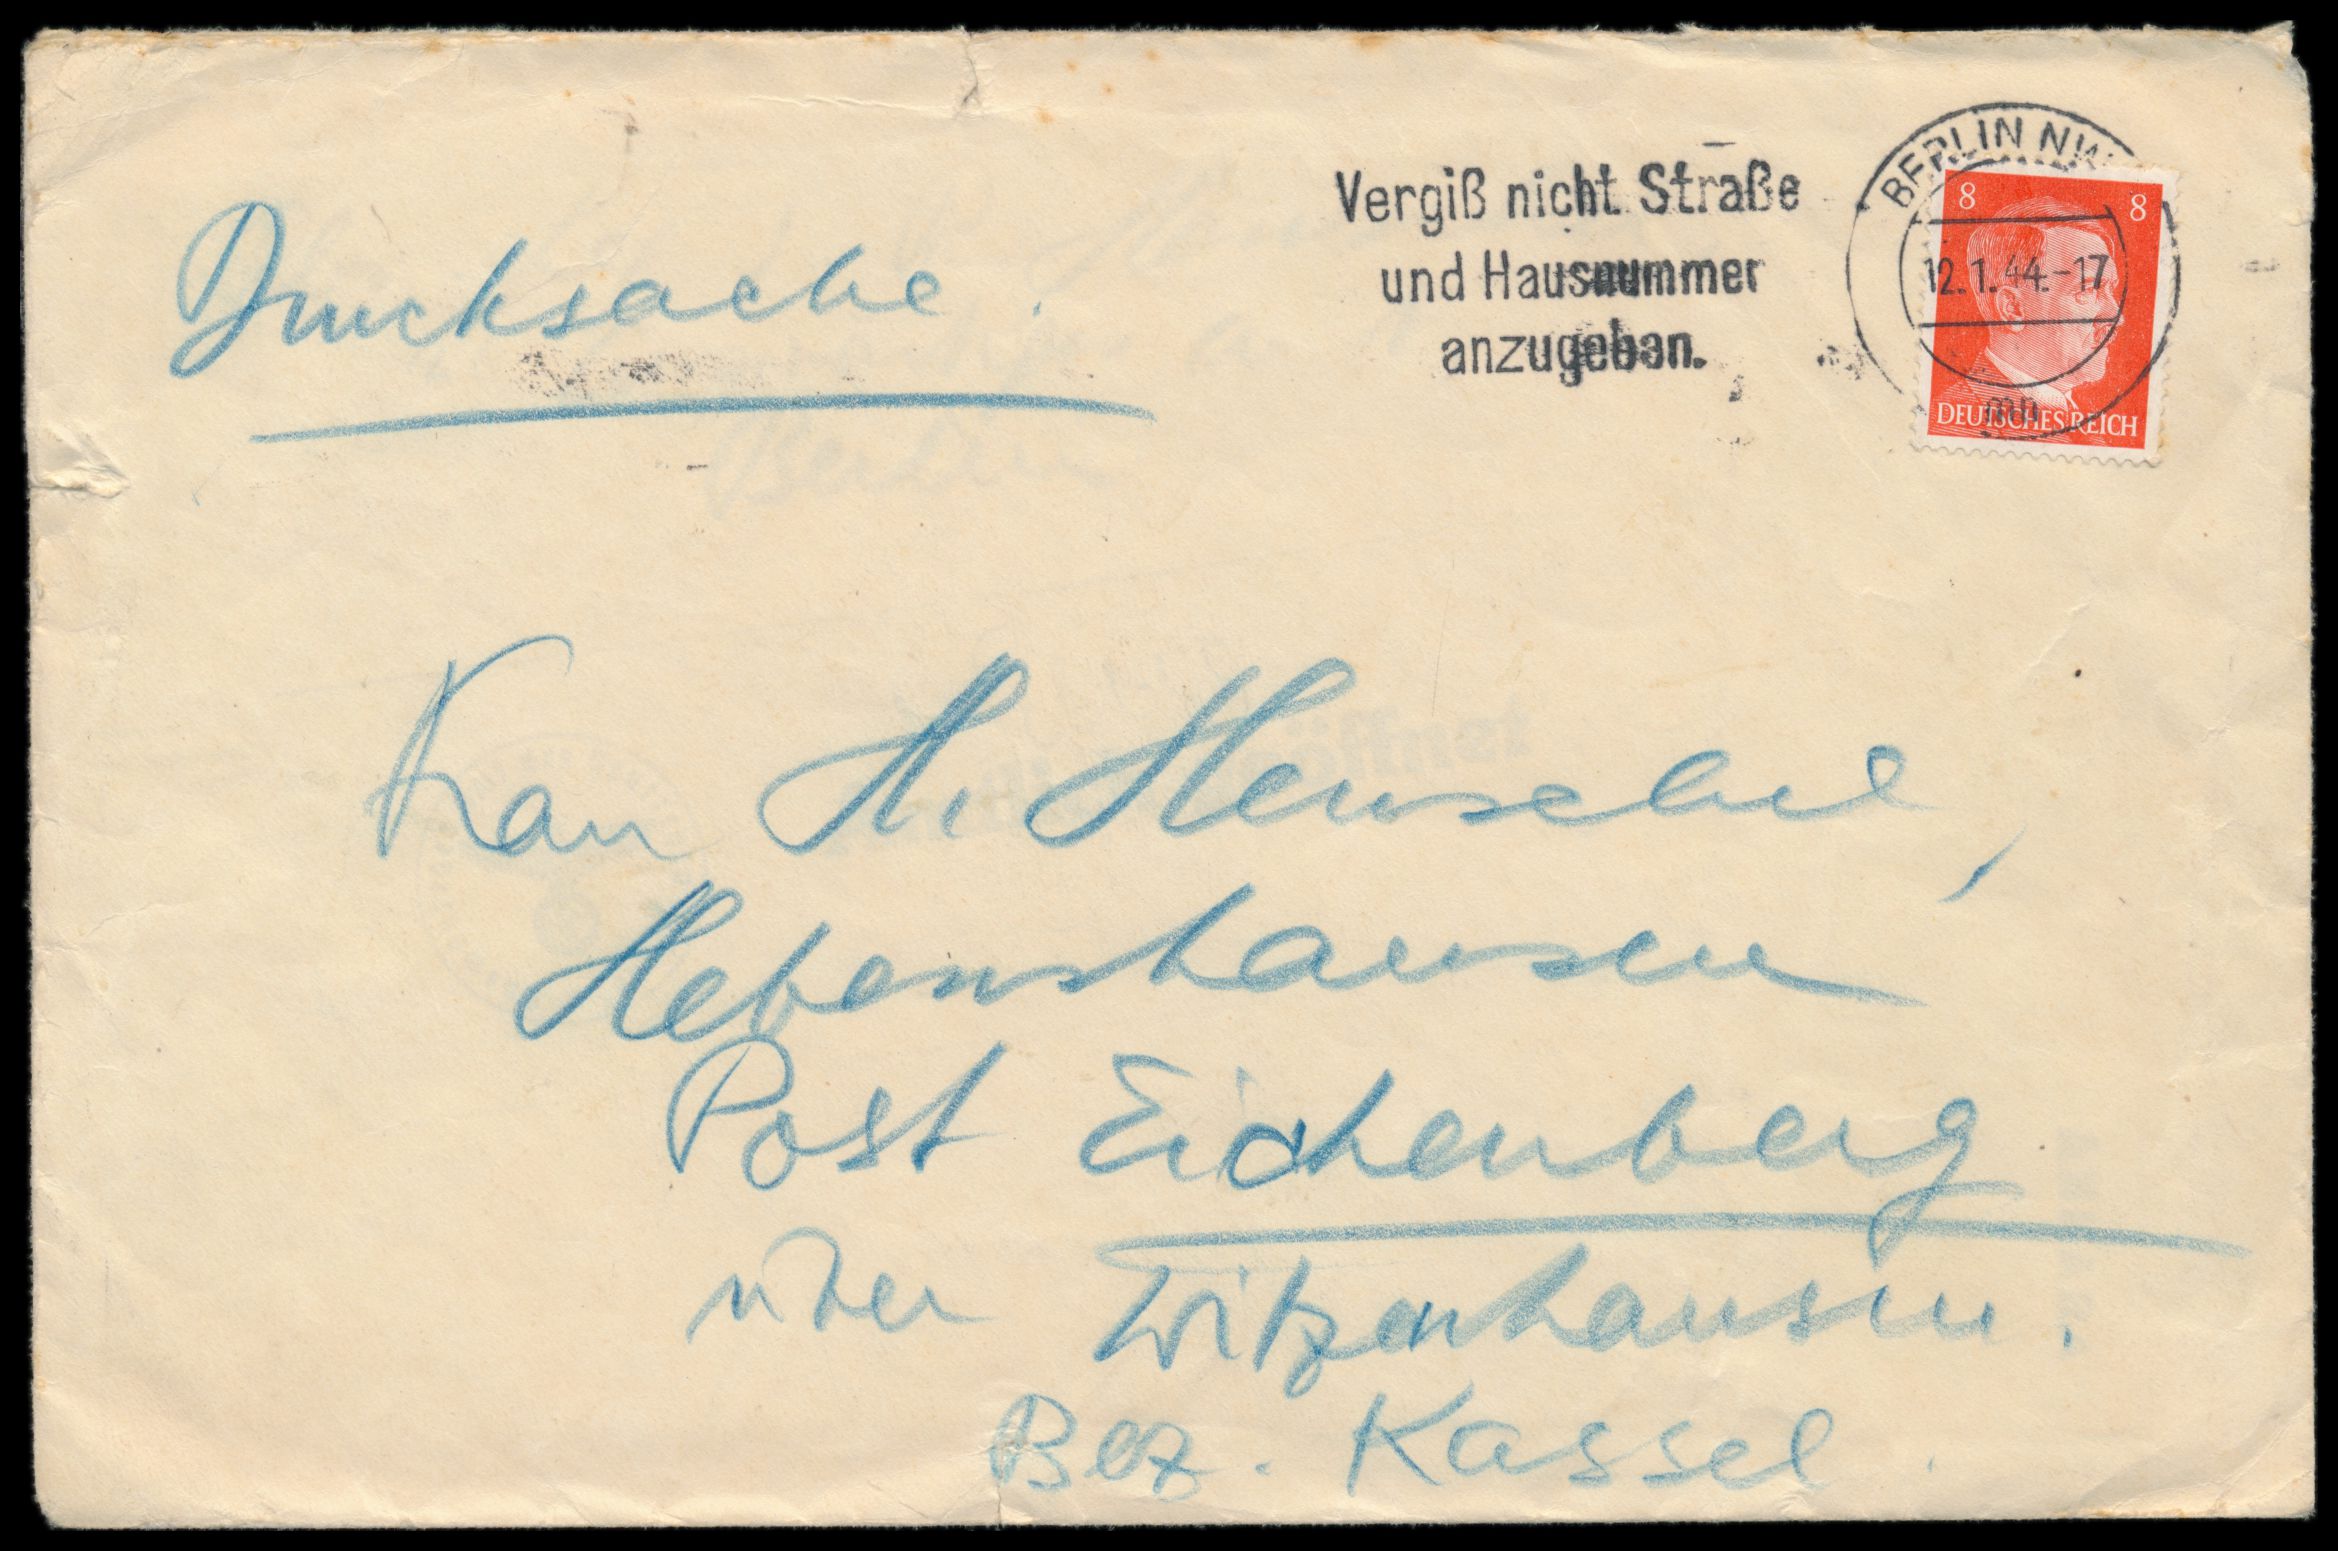 Drucksache.
Vergiß nicht Straße
und Hausnummer
anzugeben.
BERLIN NW
12.1.44.-17
mn
8 8
DEUTSCHES REICH
Frau H. Henschel,
Hebenshausen
Post Eichenberg
über Witzenhausen.
Bez. Kassel.
Berlin